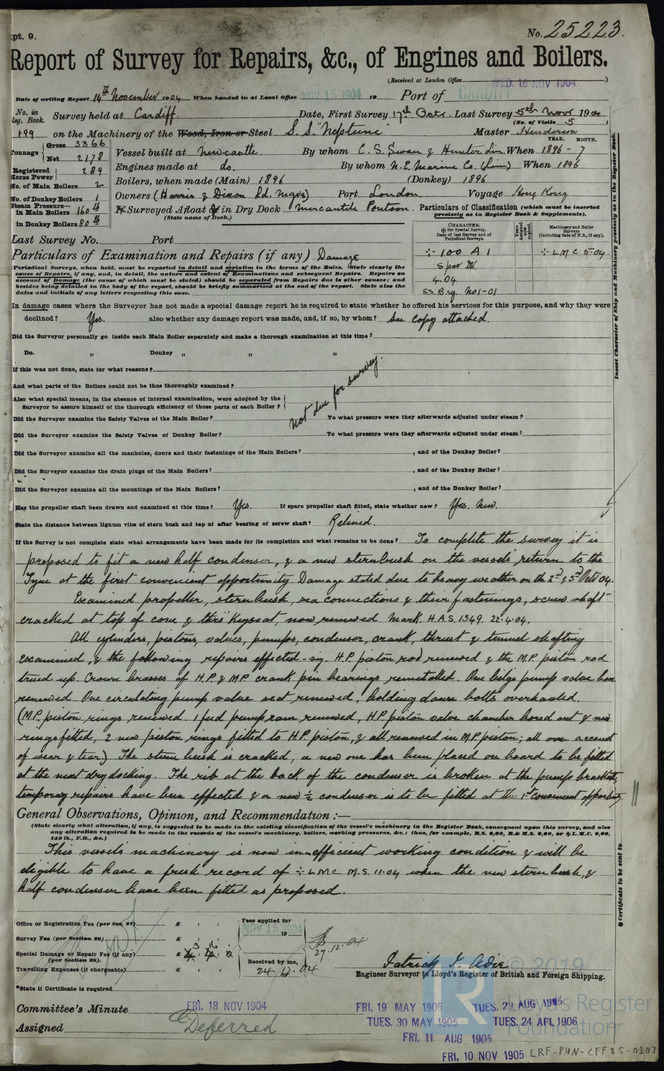 Rpt. 9.
No. 25223.
Report of Survey for Repairs, &c., of Engines and Boilers.
(Received at London Office WED. 16 NOV 1904)
Date of writing Report 14th November 1904 When handed in at Local Office NOV 15 1904 19 Port of CARDIFF
No. in Reg. Book. Survey held at Cardiff Date, First Survey 17th Octr. Last Survey 5th Novr 1904
(No. of Visits 5
199 on the Machinery of the Wood, Iron or Steel S.S. "Neptune" Master Henderson
Tonnage Gross 3366 Net 2178
Vessel built at Newcastle By whom C. S. Swan & Hunter Lim When 1896-7
YEAR. MONTH.
Registered Horse Power 289
Engines made at do. By whom N.E. Marine Co. (Lim) When 1896
No. of Main Boilers 2
Boilers, when made (Main) 1896 (Donkey) 1896
No. of Donkey Boilers 1
Owners (Harris & Dixon Ld. Mgrs) Port London Voyage Hong Kong
Steam Pressure in Main Boilers 160 lb
in Donkey Boilers 80 lb
If Surveyed Afloat or in Dry Dock Mercantile Pontoon
(State name of Dock.)
Particulars of Classification (which must be inserted precisely as in Register Book & Supplements).
Last Survey No. Port
CHARACTER.
Machinery and Boiler Surveys
÷ 100 A 1
÷ L M C 5.04
4.04
Particulars of Examination and Repairs (if any) Damage
Periodical Surveys, when held, must be reported in detail and seriatim in the terms of the Rules. State clearly the
causes of Repairs, if any, and, in detail, the nature and extent of Examinations and subsequent Repairs. Repairs on
account of Damage (the cause of which must be stated) should be separated from Repairs due to other causes; and
besides being detailed in the body of the report, should be briefly summarized at the end of the report. State also the
dates and initials of any letters respecting this case.
In damage cases where the Surveyor has not made a special damage report he is required to state whether he offered his services for this purpose, and why they were
declined? Yes. also whether any damage report was made, and, if so, by whom? See copy attached
Did the Surveyor personally go inside each Main Boiler separately and make a thorough examination at this time?
Do. " Donkey " " "
If this was not done, state for what reasons?
And what parts of the Boilers could not be thoroughly examined?
Also what special means, in the absence of internal examination, were adopted by the
Surveyor to assure himself of the thorough efficiency of those parts of each Boiler?
Not due for survey.
Did the Surveyor examine the Safety Valves of the Main Boiler? To what pressure were they afterwards adjusted under steam?
Did the Surveyor examine the Safety Valves of Donkey Boiler? To what pressure were they afterwards adjusted under steam?
Did the Surveyor examine all the manholes, doors and their fastenings of the Main Boilers? , and of the Donkey Boiler?
Did the Surveyor examine the drain plugs of the Main Boilers? , and of the Donkey Boiler?
Did the Surveyor examine all the mountings of the Main Boilers? , and of the Donkey Boiler?
Has the propeller shaft been drawn and examined at this time? Yes. If spare propeller shaft fitted, state whether new? Yes. New.
State the distance between lignum vitæ of stern bush and top of after bearing of screw shaft? Relined.
If the Survey is not complete state what arrangements have been made for its completion and what remains to be done? To complete the survey it is
proposed to fit a new half condenser, & a new sternbush on the vessels return to the
Tyne at the first convenient opportunity. Damage stated due to heavy weather on the 2nd & 3rd Octr 04.
Examined propeller, sternbush, sea connections & their fastenings, screw shaft
cracked at top of cone & thro' keyseat, now renewed Mark. H.A.S. 1349. 22.4.04.
All cylinders, pistons, valves, pumps, condenser, crank, thrust & tunnel shafting
examined, & the following repairs effected viz. H.P. piston rod renewed & the M.P. piston rod
trued up. Crown brasses of H.P & M.P crank pin bearings remetalled. One bilge pump valve box
renewed. One circulating pump valve seat renewed, holding down bolts overhauled.
(M.P. piston rings renewed 1 feed pump ram renewed, H.P. piston valve chamber bored out & new
rings fitted, 2 new piston rings fitted to H.P. piston, & all renewed in M.P. piston; all on account
of wear & tear.) The stern bush is cracked, a new one has been placed on board to be fitted
at the next drydocking. The rib at the back of the condenser is broken at the pump brackets,
temporary repairs have been effected & a new ½ condenser is to be fitted at the 1st convenient opportunity
General Observations, Opinion, and Recommendation:—
(State clearly what alteration, if any, is suggested to be made in the existing classification of the vessel's machinery in the Register Book, consequent upon this survey, and also
any alteration required to be made in the records of the vessel's machinery, boilers, working pressures, &c.; thus, for example, B.S. 9,00, B.& M.S. 9,00, or ✠L.M.C. 9,00,
140 lb., F.D., &c.)
This vessels machinery is now in efficient working condition & will be
eligible to have a fresh record of ÷ L.M.C M.S. 11.04 when the new sternbush, &
half condenser have been fitted as proposed.
Office or Registration Fee (per Sec. 27) £ : :
Survey Fee (per Section 28) £ : :
Special Damage or Repair Fee (if any) (per Section 29) £
Travelling Expenses (if chargeable) £ : :
Fees applied for NOV 15 1904 19
Received by me, 24.12.04
29.12.04
Patrick T. Adie
Engineer Surveyor to Lloyd's Register of British and Foreign Shipping.
*State if Certificate is required.
Committee's Minute FRI. 18 NOV 1904
Assigned Deferred
FRI. 19 MAY 1905 TUES. 29 AUG 1905
TUES. 30 MAY 1905 TUES. 24 APL 1906
FRI. 11 AUG 1905
FRI. 10 NOV 1905
LRF-PUN-CFF85-0107
© 2019
LR
Lloyd's Register
Foundation
Insert Character of Ship and Machinery precisely as in the Register Book.
*Certificate to be sent to